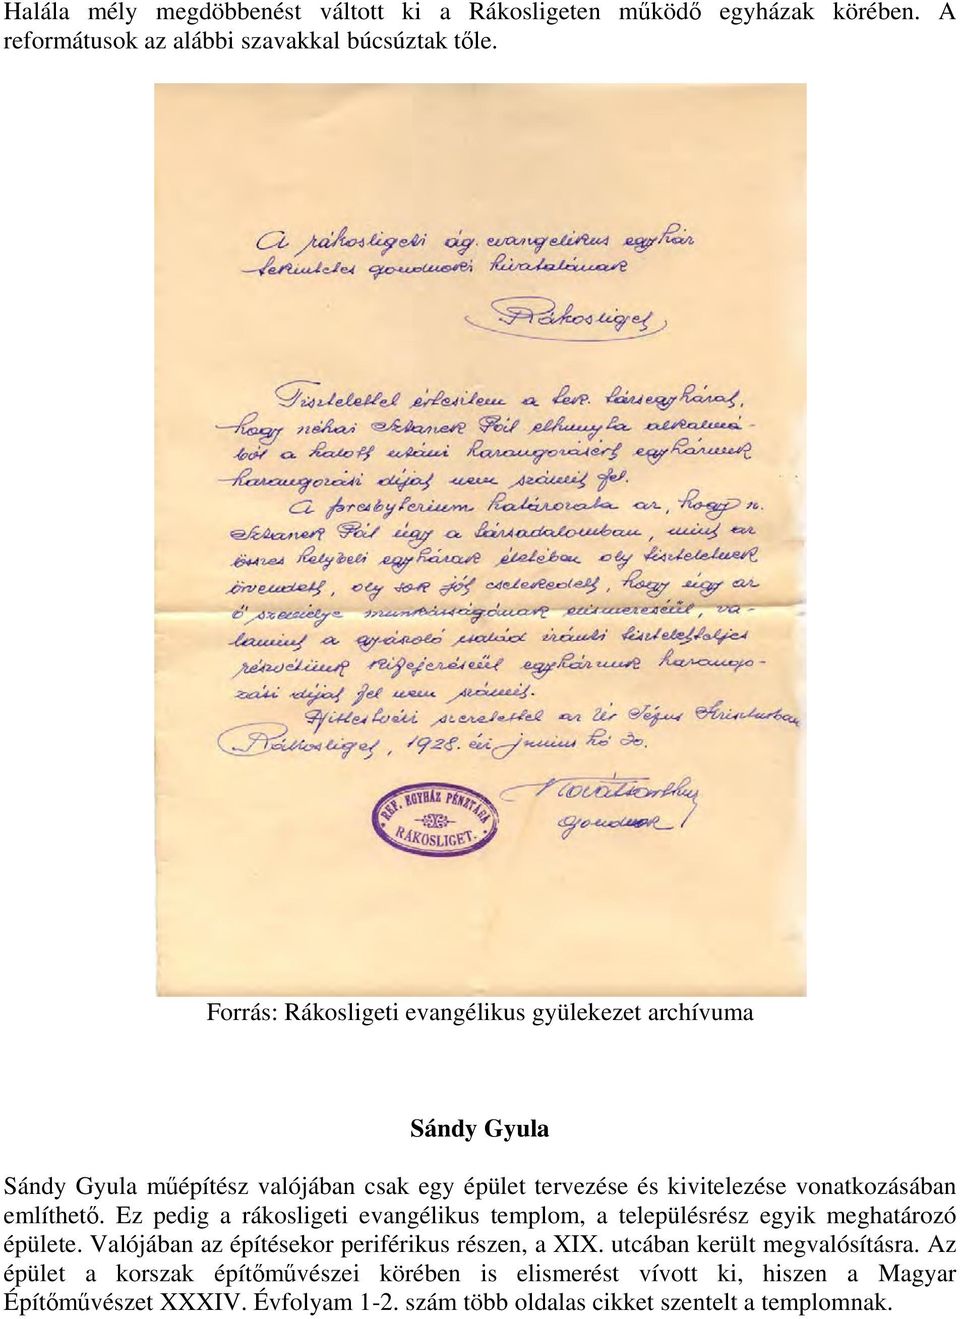 Halála mély megdöbbenést váltott ki a Rákosligeten működő egyházak körében. A
reformátusok az alábbi szavakkal búcsúztak tőle.
A rákosligeti ág. evangelikus egyház
tekintetes gondnoki hivatalának
Rákosliget,
Tisztelettel értesitem a tek. társegyházat,
hogy néhai Sztanek Pál elhunyta alkalmá-
ból a halott utáni harangozásért egyházunk
harangozási díjat nem számit fel.
A presbyterium határozata az, hogy n.
Sztanek Pál úgy a társadalomban, mint az
összes helybeli egyházak életében oly tiszteletnek
örvendett, oly sok jót cselekedett, hogy úgy az
ő személye munkásságának elismeréséül, va-
lamint a gyászoló család iránti tiszteletteljes
részvétünk kifejezéséül egyházunk harango-
zási díjat fel nem számit.
Hittestvéri szeretettel az Úr Jézus Krisztusban
Rákosliget, 1928. évi junius hó 30.
REF. EGYHÁZ PÉNZTÁRA
RÁKOSLIGET.
Gondnok
Forrás: Rákosligeti evangélikus gyülekezet archívuma
Sándy Gyula
Sándy Gyula műépítész valójában csak egy épület tervezése és kivitelezése vonatkozásában
említhető. Ez pedig a rákosligeti evangélikus templom, a településrész egyik meghatározó
épülete. Valójában az építésekor periférikus részen, a XIX. utcában került megvalósításra. Az
épület a korszak építőművészei körében is elismerést vívott ki, hiszen a Magyar
Építőművészet XXXIV. Évfolyam 1-2. szám több oldalas cikket szentelt a templomnak.